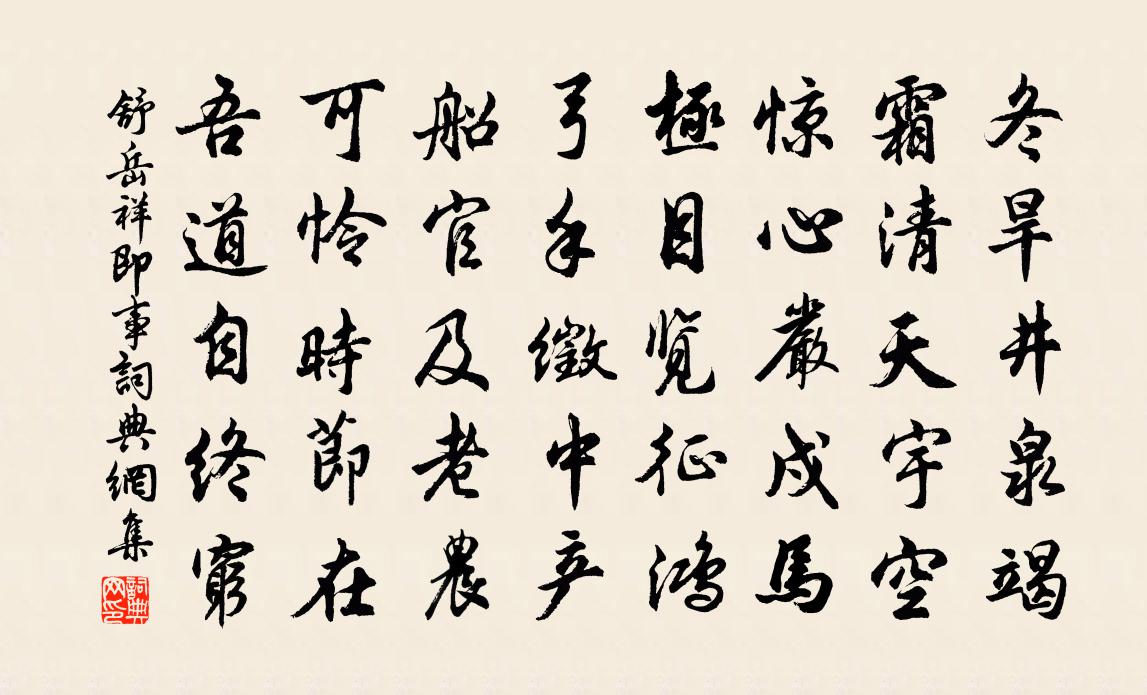 冬旱井泉竭
霜清天宇空
惊心嚴戍馬
極目览征鸿
弓手徵中产
船官及老農
可怜時節在
吾道自终窮
舒岳祥即事詞典網集
詞典网印